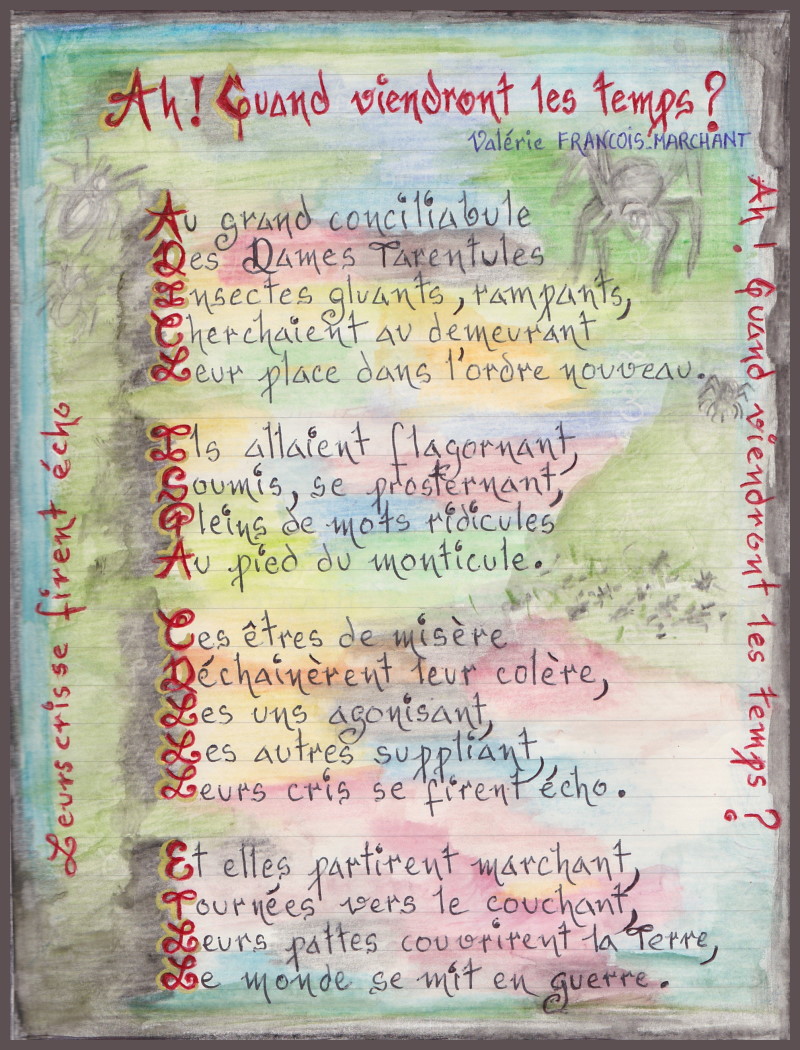 Ah! Quand viendront les temps?
Valérie FRANCOIS-MARCHANT
Au grand conciliabule
Des Dames Tarentules
Insectes gluants, rampants,
Cherchaient au demeurant
Leur place dans l'ordre nouveau.
Ils allaient flagornant,
Soumis, se prosternant,
Pleins de mots ridicules
Au pied du monticule.
Ces êtres de misère
Déchainèrent leur colère,
Les uns agonisant,
Les autres suppliant,
Leurs cris se firent écho.
Et elles partirent marchant,
Tournées vers le couchant,
Leurs pattes couvrirent la Terre,
Le monde se mit en guerre.
Leurs cris se firent écho
Ah! Quand viendront les temps?